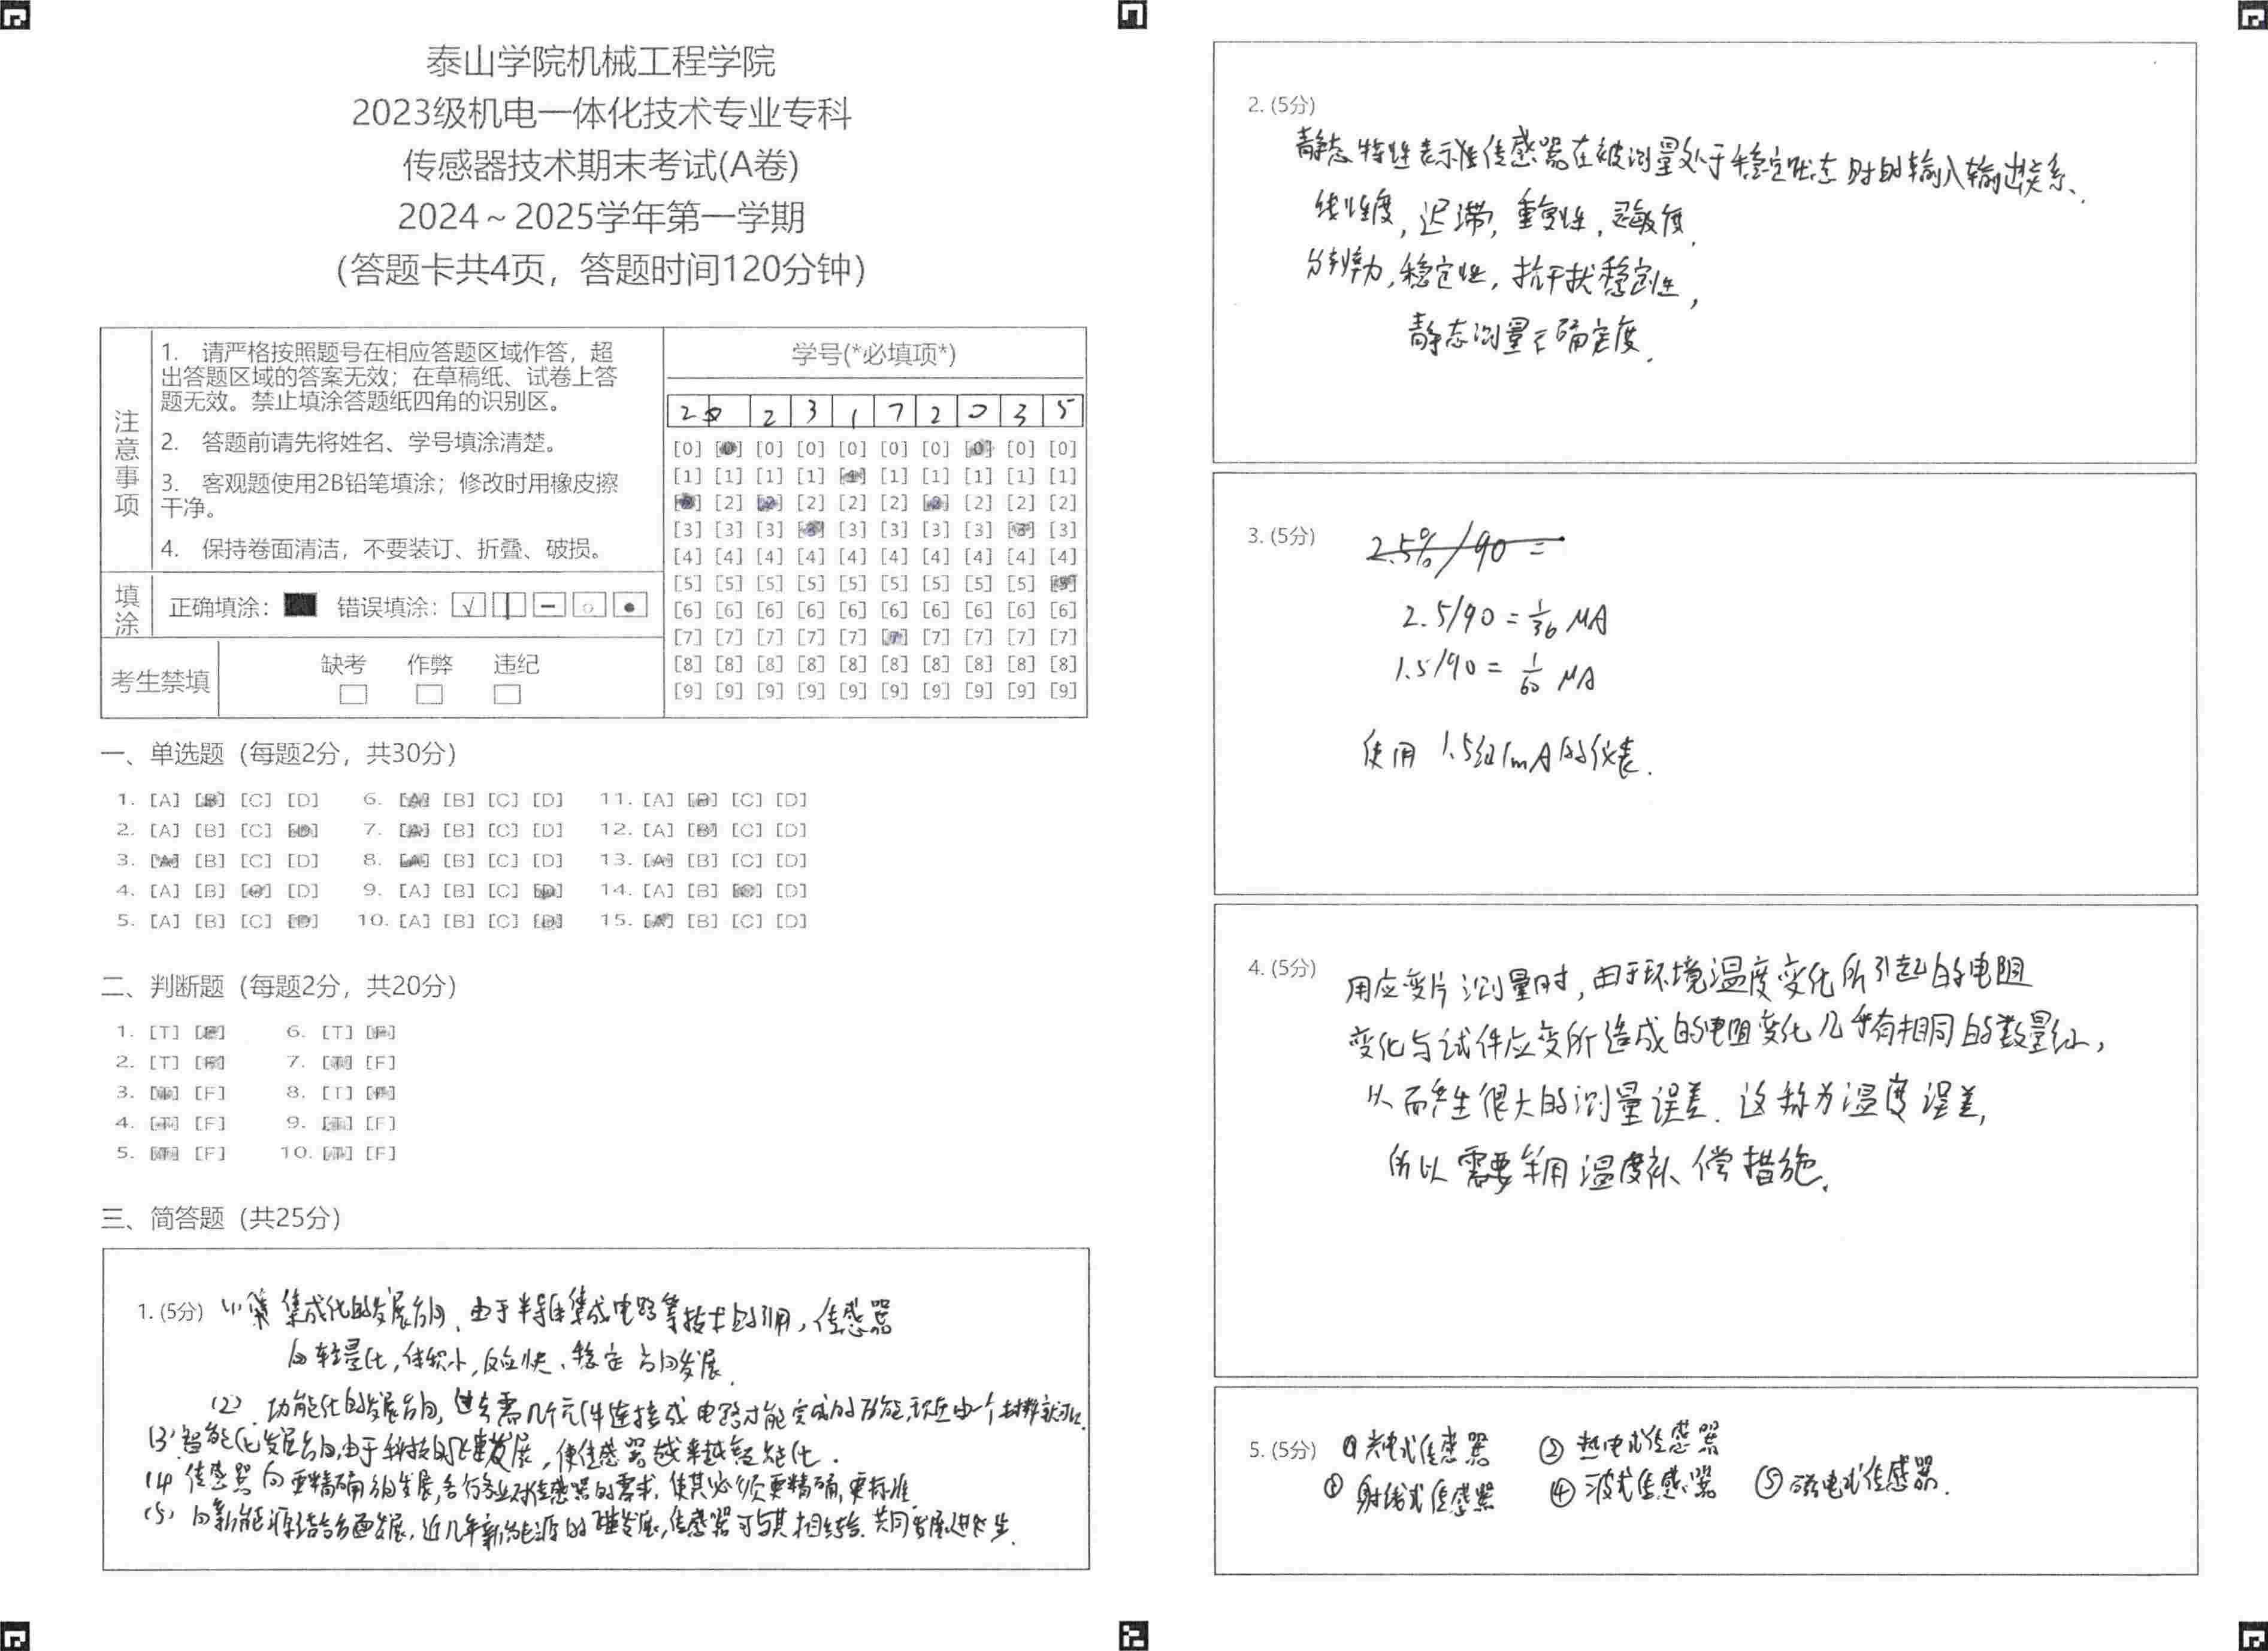 泰山学院机械工程学院
2023级机电一体化技术专业专科
传感器技术期末考试(A卷)
2024～2025学年第一学期
(答题卡共4页，答题时间120分钟)
注意事项
1. 请严格按照题号在相应答题区域作答，超
出答题区域的答案无效；在草稿纸、试卷上答
题无效。禁止填涂答题纸四角的识别区。
2. 答题前请先将姓名、学号填涂清楚。
3. 客观题使用2B铅笔填涂；修改时用橡皮擦
干净。
4. 保持卷面清洁，不要装订、折叠、破损。
填涂
正确填涂： 错误填涂：
考生禁填
缺考 作弊 违纪
学号(*必填项*)
2 0 2 3 1 7 2 0 3 5
[0] [0] [0] [0] [0] [0] [0] [0] [0] [0]
[1] [1] [1] [1] [1] [1] [1] [1] [1] [1]
[2] [2] [2] [2] [2] [2] [2] [2] [2] [2]
[3] [3] [3] [3] [3] [3] [3] [3] [3] [3]
[4] [4] [4] [4] [4] [4] [4] [4] [4] [4]
[5] [5] [5] [5] [5] [5] [5] [5] [5] [5]
[6] [6] [6] [6] [6] [6] [6] [6] [6] [6]
[7] [7] [7] [7] [7] [7] [7] [7] [7] [7]
[8] [8] [8] [8] [8] [8] [8] [8] [8] [8]
[9] [9] [9] [9] [9] [9] [9] [9] [9] [9]
一、单选题 (每题2分，共30分)
1. [A] [B] [C] [D] 6. [A] [B] [C] [D] 11. [A] [B] [C] [D]
2. [A] [B] [C] [D] 7. [A] [B] [C] [D] 12. [A] [B] [C] [D]
3. [A] [B] [C] [D] 8. [A] [B] [C] [D] 13. [A] [B] [C] [D]
4. [A] [B] [C] [D] 9. [A] [B] [C] [D] 14. [A] [B] [C] [D]
5. [A] [B] [C] [D] 10. [A] [B] [C] [D] 15. [A] [B] [C] [D]
二、判断题 (每题2分，共20分)
1. [T] [F] 6. [T] [F]
2. [T] [F] 7. [T] [F]
3. [T] [F] 8. [T] [F]
4. [T] [F] 9. [T] [F]
5. [T] [F] 10. [T] [F]
三、简答题 (共25分)
1. (5分) (1) 集成化的发展方向、由于半导体集成电路等技术的引用，传感器
向轻量化，体积小，反应快、稳定方向发展.
(2). 功能化的发展方向，过去需几个元件连接成电路才能完成的功能，现在由一个就可以.
(3) 智能化发展方向，由于科技的飞速发展，使传感器越来越智能化.
(4) 传感器向更精确方向发展，各行各业对传感器的需求，使其必须更精确，更标准.
(5) 向新能源结合方面发展，近几年新能源的发展，传感器可与其相结合. 共同发展进步.
2. (5分)
静态特性表示传感器在被测量处于稳定状态时的输入输出关系、
线性度，迟滞，重复性，灵敏度，
分辨力，稳定性，抗干扰稳定性，
静态测量不确定度.
3. (5分) 2.5%/90 =
2.5/90 = 1/36 MA
1.5/90 = 1/60 MA
使用 1.5级1mA的仪表.
4. (5分) 用应变片测量时，由于环境温度变化所引起的电阻
变化与试件应变所造成的电阻变化几乎有相同的数量级，
从而产生很大的测量误差. 这称为温度误差，
所以需要采用温度补偿措施.
5. (5分) ①光电式传感器 ②热电式传感器
③ 射线式传感器 ④ 波式传感器 ⑤磁电式传感器.